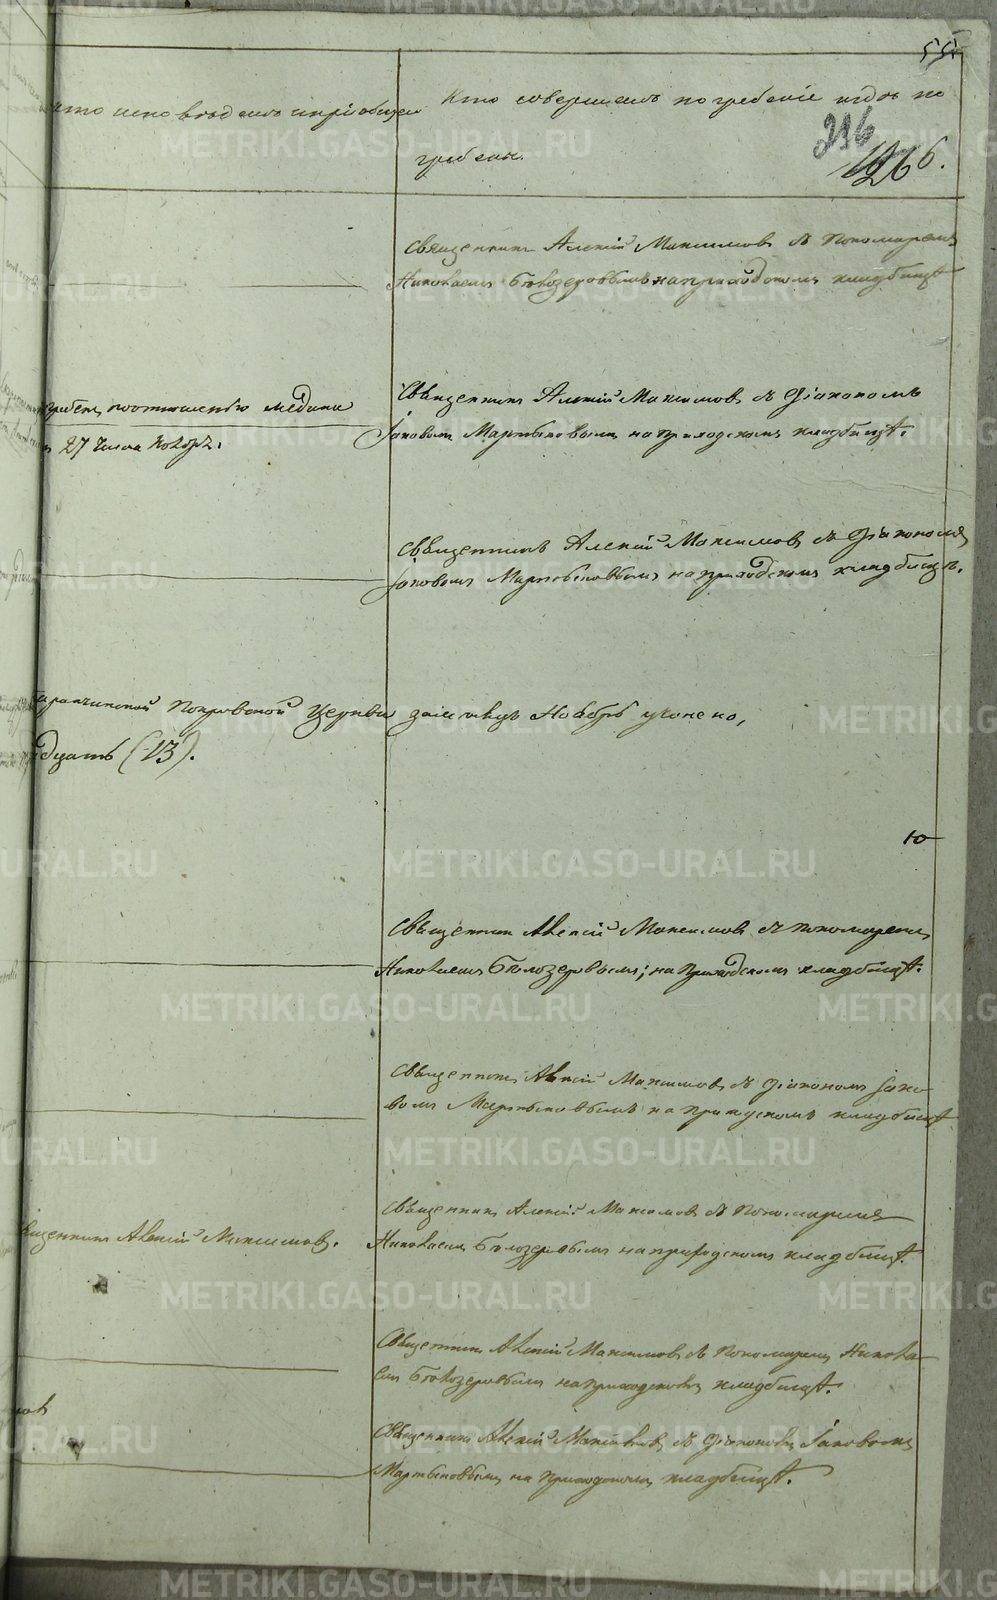 55.
Кто исповѣдалъ и пріобщалъ
Кто совершалъ погребеніе и гдѣ по
гребены.
216
1266.
Священникъ Алексій Максимовъ съ Пономаремъ
Николаемъ Бѣлозеровымъ на приходскомъ кладбищѣ
Священникъ Алексій Максимовъ съ Діакономъ
Іаковомъ Мартыновымъ на приходскомъ кладбищѣ.
27 числа Ноября.
Священникъ Алексій Максимовъ съ Діакономъ
Іаковомъ Мартыновымъ на приходскомъ кладбищѣ.
Покровской Церкви за мѣсяцъ Ноябрь учинено,
дцать (13).
10
Священникъ Алексій Максимовъ съ Пономаремъ
Николаемъ Бѣлозеровымъ; на приходскомъ кладбищѣ.
Священникъ Алексій Максимовъ съ Діакономъ Іако
вомъ Мартыновымъ на приходскомъ кладбищѣ
Священникъ Алексій Максимовъ съ Пономаремъ
вященникъ Алексій Максимовъ.
Николаемъ Бѣлозеровымъ на приходскомъ кладбищѣ.
Священникъ Алексій Максимовъ съ Пономаремъ Никола
емъ Бѣлозеровымъ на приходскомъ кладбищѣ.
Священникъ Алексій Максимовъ съ Діакономъ Іаковомъ
Мартыновымъ на приходскомъ кладбищѣ.
METRIKI.GASO-URAL.RU